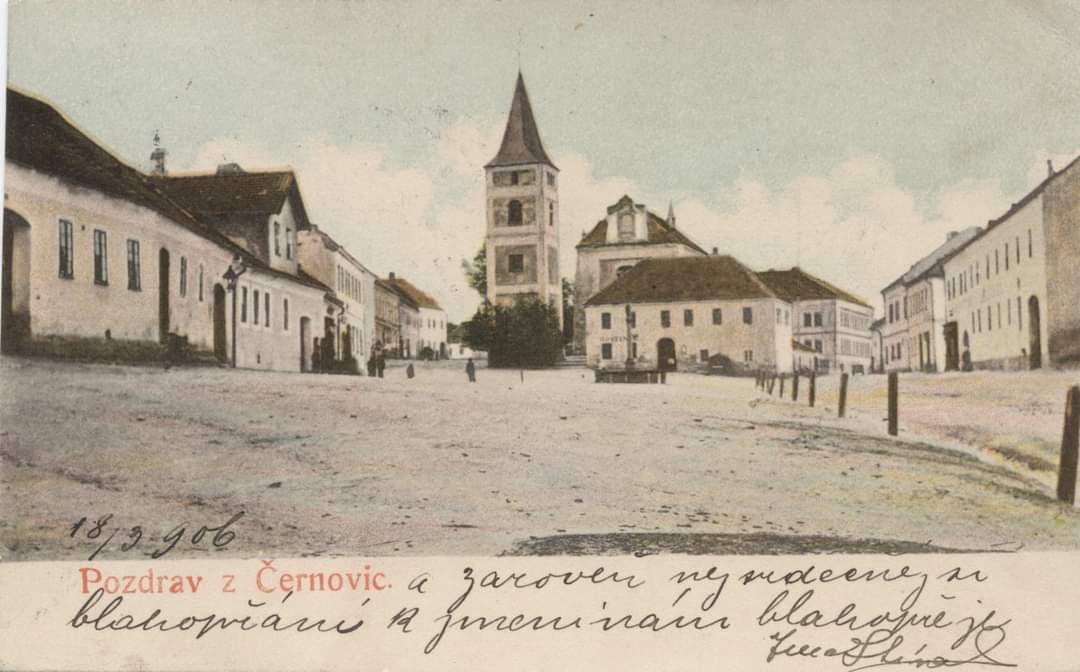 18/3 906
Pozdrav z Černovic. a zároveň nejsrdečnější
blahopřání k jmeninám blahopřeje